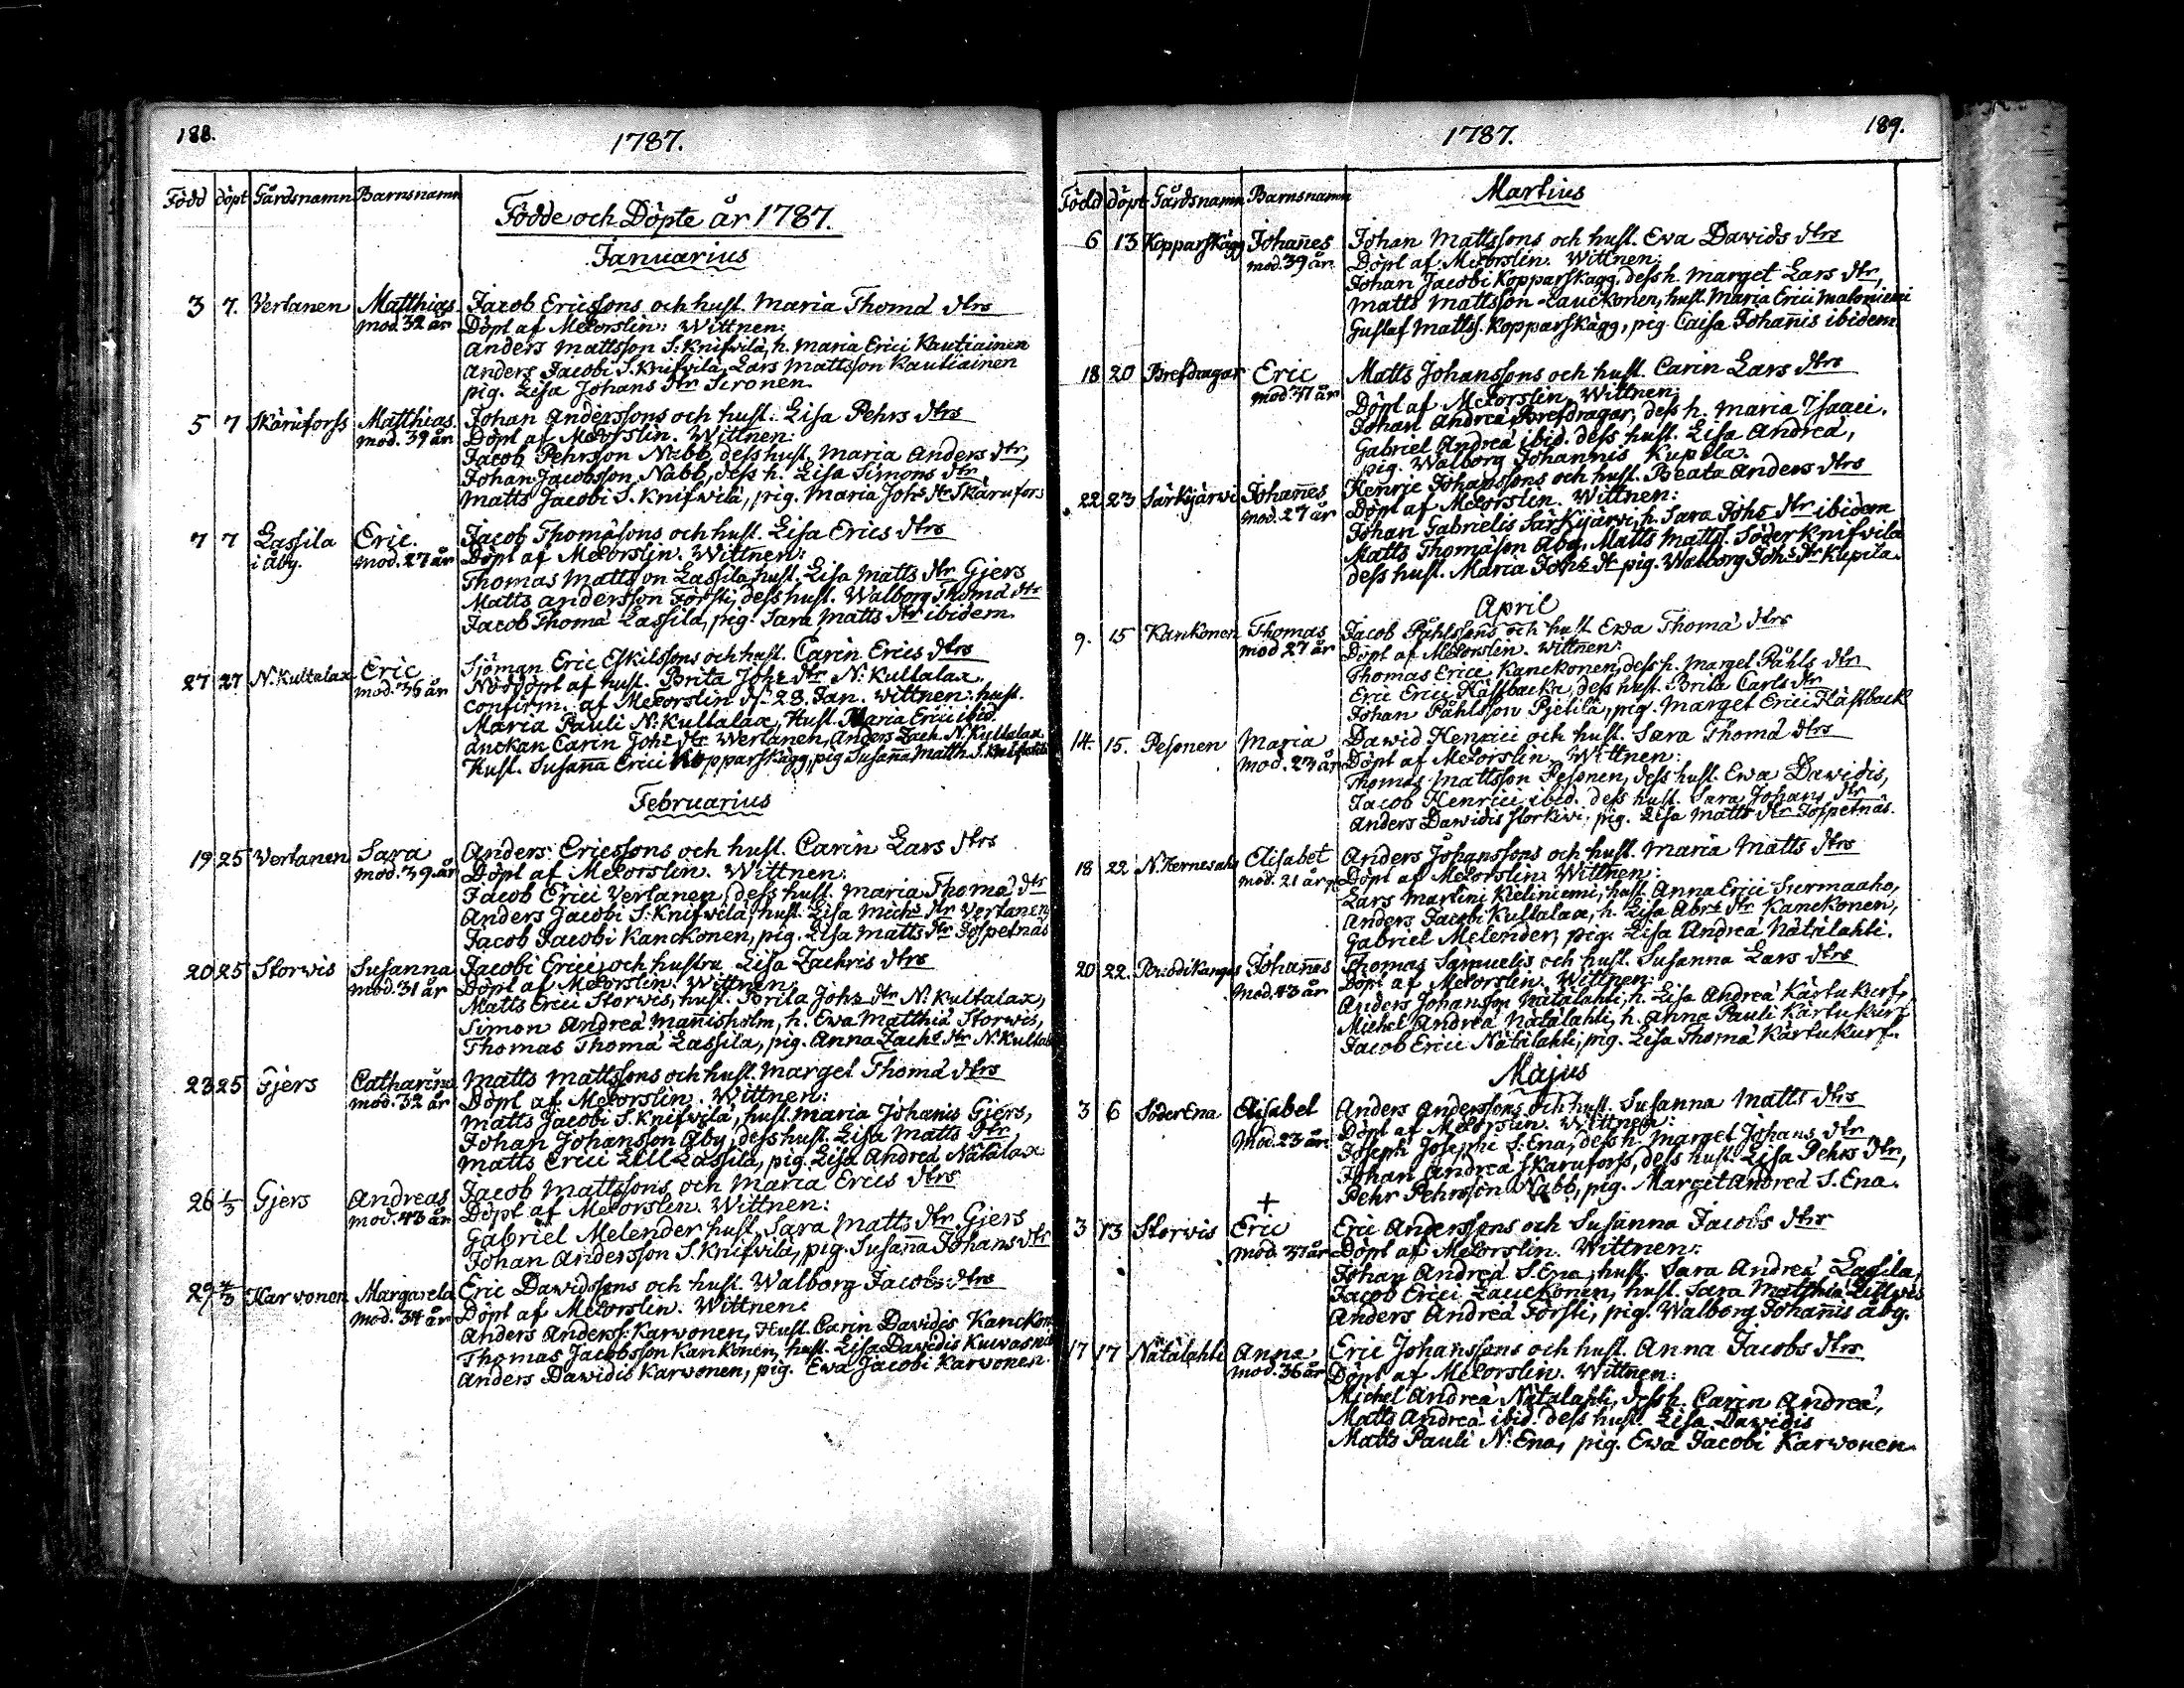 188.
1787.
Född döpt Gårdsnamn Barnsnamn
Födde och Döpte år 1787.
Januarius
3 7. Vertanen Matthias Jacob Ericssons och hust. Maria Thomæ dtrs
mod. 32 år Döpt af Melorslin: Wittnen:
Anders Mattsson S: Knifwilä, h. Maria Erici Kautiainen
Anders Jacobi S. Knifvilä, Lars Mattsson Kautiainen
pig. Lisa Johans dtr Sironen.
5 7 Skäruforss Matthias. Johan Anderssons och hust. Lisa Pehrs dtrs
mod. 39 år Döpt af Melorslin. Wittnen:
Jacob Pehrsson Nabb, dess hust. Maria Anders dtr,
Johan Jacobsson Nabb, dess h. Lisa Simons dtr
Matts Jacobi S. Knifwilä, pig. Maria Johs dtr Skärufors
7 7 Lassila Eric. Jacob Thomäsons och hust. Lisa Erics dtrs
i Åby. mod. 27 år Döpt af Melorslin. Wittnen:
Thomas Mattson Lassila, hust. Lisa Matts dtr Gjers
Matts Andersson Försti, dess hust. Walborg Thomä dtr
Jacob Thomä Lassila, pig. Sara Matts dtr ibidem.
27 27 N. Kultalax Eric Sjöman Eric Eskilssons och hust. Carin Erics dtrs
mod. 36 år Nöddöpt af hust. Brita Johs dtr N: Kultalax,
confirm. af Melorslin d. 28. Jan. wittnen: hust.
Maria Pauli N: Kultalax, Hust. Maria Erici ibid.
änckan Carin Johs dtr Wertanen, Anders Zach. N. Kultalax
Hust. Susanna Erici Kopparskägg, pig Susanna Matth. S. Knifwilä
Februarius
19 25 Vertanen Sara Anders Ericssons och hust. Carin Lars dtrs
mod. 39. år Döpt af Melorslin. Wittnen:
Jacob Erici Vertanen, dess hust. Maria Thomä dtr
Anders Jacobi S: Knifvilä, hust. Lisa Michs dtr Vertanen,
Jacob Jacobi Kanckonen, pig. Lisa Matts dtr Jospetnäs
20 25 Storwis Susanna Jacobi Erici, och hustru Lisa Zachris dtrs
mod. 31 år Döpt af Melorslin. Wittnen:
Matts Erici Storwis, hust. Brita Johs dtr N: Kultalax,
Simon Andreä Mannisholm, h. Ewa Matthiä Storwis,
Thomas Thomä Lassila, pig. Anna Zachs dtr N: Kultala
23 25 Gjers Catharina Matts Mattssons och hust. Marget Thomä dtrs
mod. 32 år Döpt af Melorslin. Wittnen:
Matts Jacobi S. Knifvilä, hust. Maria Johanis Gjers,
Johan Johansson Åby, dess hust. Lisa Matts dtr
Matts Erici Lill Lassila, pig. Lisa Andreä Nätälax
26 1/3 Gjers Andreas Jacob Mattssons och Maria Erics dtrs
mod. 43 år Döpt af Melorslin. Wittnen:
Gabriel Melender hust. Sara Matts dtr Gjers
Johan Andersson S. Knifvilä, pig. Susanna Johans dtr
29 4/3 Karwonen Margareta Eric Davidssons och hust. Walborg Jacobs dtrs
mod. 34 år Döpt af Melorslin. Wittnen:
Anders Anderss. Karwonen, Hust. Carin Davidis Kanckon
Thomas Jacobsson Kankonen, hust. Lisa Davidis Kuwasnä
Anders Dawidis Karwonen, pig. Ewa Jacobi Karwonen.
189.
1787.
Född döpt Gårdsnamn Barnsnamn
Martius
6 13 Kopparskägg Johannes Johan Mattssons och hust. Eva Dawids dtrs
mod. 39 år Döpt af Melorslin. Wittnen:
Johan Jacobi Kopparskägg, dess h. Marget Lars dtr,
Matts Mattsson Lauckonen, hust. Maria Erici Maloniemi
Gustaf Mattss. Kopparskägg, pig. Caisa Johannis ibidem.
18 20 Brefdragar Eric Matts Johanssons och hust. Carin Lars dtrs
mod. 37 år Döpt af Melorslin, Wittnen:
Johan Andreä Brefdragar, dess h. Maria Isaaci.
Gabriel Andreä ibid. dess hust. Lisa Andreä,
pig. Walborg Johannis Kupila.
22 23 Särkijärwi Johannes Henric Johanssons och hust. Beata Anders dtrs
mod. 27 år Döpt af Melorslin. Wittnen:
Johan Gabrielis Särkijärwi, h. Sara Johs dtr ibidem
Matts Thomäson Åby, Matts Matts. Söder Knifvilä
dess hust. Maria Johs dtr pig. Walborg Johs dtr Kupila.
April
9. 15 Kankonen Thomas Jacob Påhlssons och hust. Ewa Thomä dtrs
mod 27 år Döpt af Melorslin. Wittnen:
Thomas Erici Kanckonen, dess h. Marget Påhls dtr
Eric Erici Hästbacka, dess hust. Brita Carls dtr
Johan Påhlsson Pjetilä, pig. Marget Erici Hästback
14. 15. Pesonen Maria Dawid Henrici och hust. Sara Thomä dtrs
mod. 23 år Döpt af Melorslin. Wittnen:
Thomas Mattsson Pesonen, dess hust. Ewa Dawidis,
Jacob Henrici ibid. dess hust. Sara Johans dtr
Anders Dawidis Storkivi. pig. Lisa Matts dtr Jospetnäs.
18 22 N. Hernesaho Elisabet Anders Johanssons och hust. Maria Matts dtrs
mod. 21 år Döpt af Melorslin. Wittnen:
Lars Martini Kieliniemi, hust. Anna Erici Surmaaho,
Anders Jacobi Kultalax, h. Lisa Abrs dtr Kanckonen,
Gabriel Melender, pig. Lisa Andreä Nätälahti.
20 22. Johannes Thomas Samuelis och hust. Susanna Lars dtrs
mod. 43 år Döpt af Melorslin. Wittnen:
Anders Johansson Nätälahti, h. Lisa Andreä Kärtukurf,
Michel Andreä Nätälahti, h. Anna Pauli Kärtukurf
Jacob Erici Nätälahti, pig. Lisa Thomä Kärtukurf.
Majus
3 6 Söder Ena Elisabet Anders Anderssons och hust. Susanna Matts dtrs
Mod. 23 år. Döpt af Melorslin. Wittnen:
Joseph Josephi S: Ena, dess h. Marget Johans dtr
Johan Andreä Skäruforss, dess hust. Lisa Pehrs dtr,
Pehr Pehrsson Nabb, pig. Margit Andreä S. Ena.
+
3 13 Storwis Eric Eric Anderssons och Susanna Jacobs dtrs
mod. 37 år Döpt af Melorslin. Wittnen:
Johan Andreä S. Ena, hust. Sara Andreä Lassila,
Jacob Erici Lauckonen, hust. Sara Matthiä Lillwis
Anders Andreä Försti, pig. Walborg Johannis Åby.
17 17 Nätälahti Anna Eric Johanssons och hust. Anna Jacobs dtrs
mod. 36 år Döpt af Melorslin. Wittnen:
Michel Andreä Nätälahti, dess h. Carin Andreä,
Matts Andreä ibid. dess hust. Lisa Dawidis
Matts Pauli N: Ena, pig. Ewa Jacobi Karwonen.